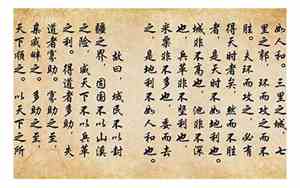 如人和。三里之城，七
里之郭，环而攻之而不
胜。夫环而攻之，必有
得天时者矣，然而不胜
者，是天时不如地利也。
城非不高也，池非不深
也，兵革非不坚利也，
米粟非不多也，委而去
之，是地利不如人和也。
故曰，域民不以封
疆之界，固国不以山溪
之险，威天下不以兵革
之利。得道者多助，失
道者寡助。寡助之至，
亲戚畔之。多助之至，
天下顺之。以天下之所